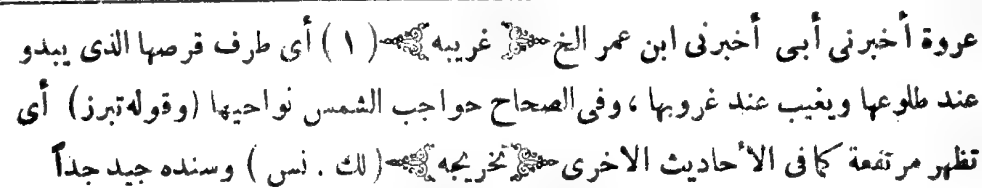 عروة أخبرنى أبى أخبرنى ابن عمر الخ غريبه (١) أى طرف قرصها الذى يبدو
عند طلوعها ويغيب عند غروبها، وفى الصحاح حواجب الشمس نواحيها (وقوله تبرز) أى
تظهر مرتفعة كما فى الأحاديث الاخرى تخريجه (لك . نس) وسنده جيد جداً